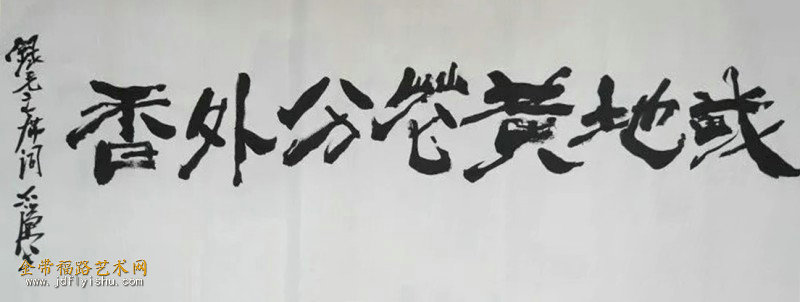 战地黄花分外香
録毛主席词
金带福路艺术网
www.jdflyishu.com